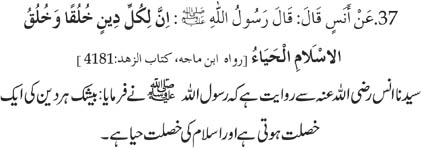 37. عَنْ أَنَسٍ قَالَ: قَالَ رَسُولُ اللَّهِ ﷺ : اِنَّ لِكُلِّ دِينٍ خُلُقًا وَخُلُقُ
الاسْلَامِ الْحَيَاءُ [رواه ابن ماجه، كتاب الزهد:4181 ]
سیدنا انس رضی اللہ عنہ سے روایت ہے کہ رسول اللہ ﷺ نے فرمایا: بیشک ہر دین کی ایک
خصلت ہوتی ہے اور اسلام کی خصلت حیا ہے۔